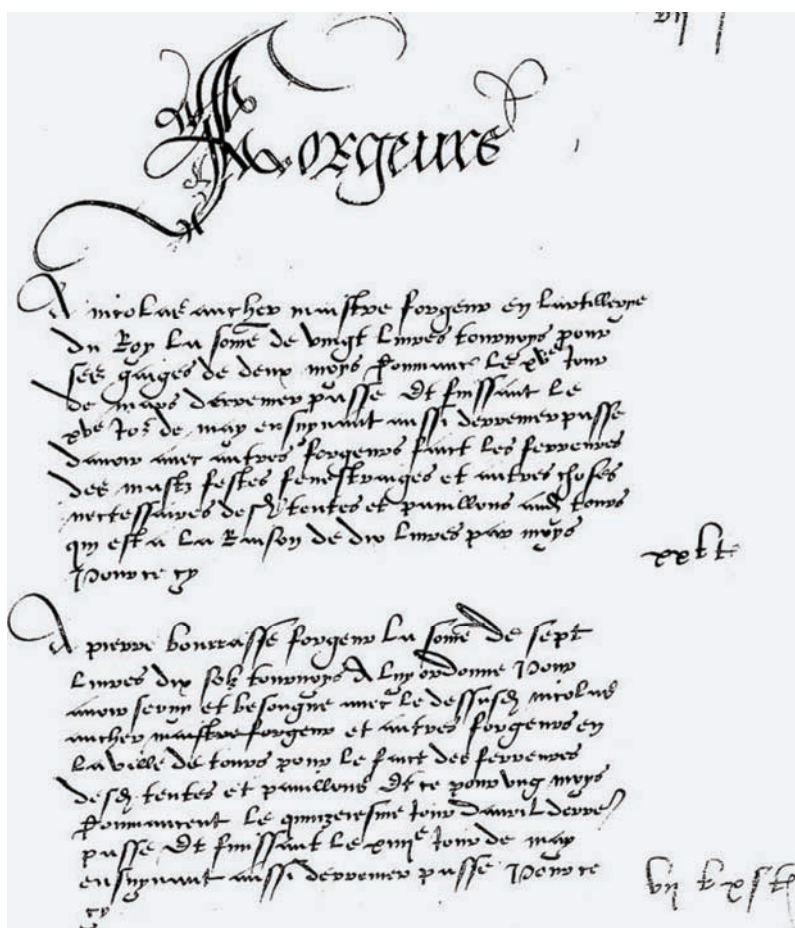 vii
Forgeurs
A nicolas aucher maistre forgeur en lartillerye
du Roy la some de vingt livres tournoys pour
ses gaiges de deux moys Commanc le xve jour
de mars derrenier passe Et finissant le
xve jor de may ensuyvant aussi derrenier passe
davoir avec autres forgeurs faict les ferreures
des mastz festes fenestraiges et autres choses
necessaires desd tentes et pavillons aud tours
qui est a la Raison de dix livres par moys
Pour ce cy
xx lt
A pierre bourrasse forgeur la some de sept
livres dix solz tournoys A luy ordonne Pour
avoir servy et besougne avec le dessusd nicolas
aucher maistre forgeur et autres forgeurs en
la ville de tours pour le faict des ferreures
desd tentes et pavillons Et ce pour ung moys
Commancent le quinzeiesme jour davril derre
passe Et finissant le xiiiie jour de may
ensuyvant aussi derrenier passe Pour ce
cy
vii l x s t